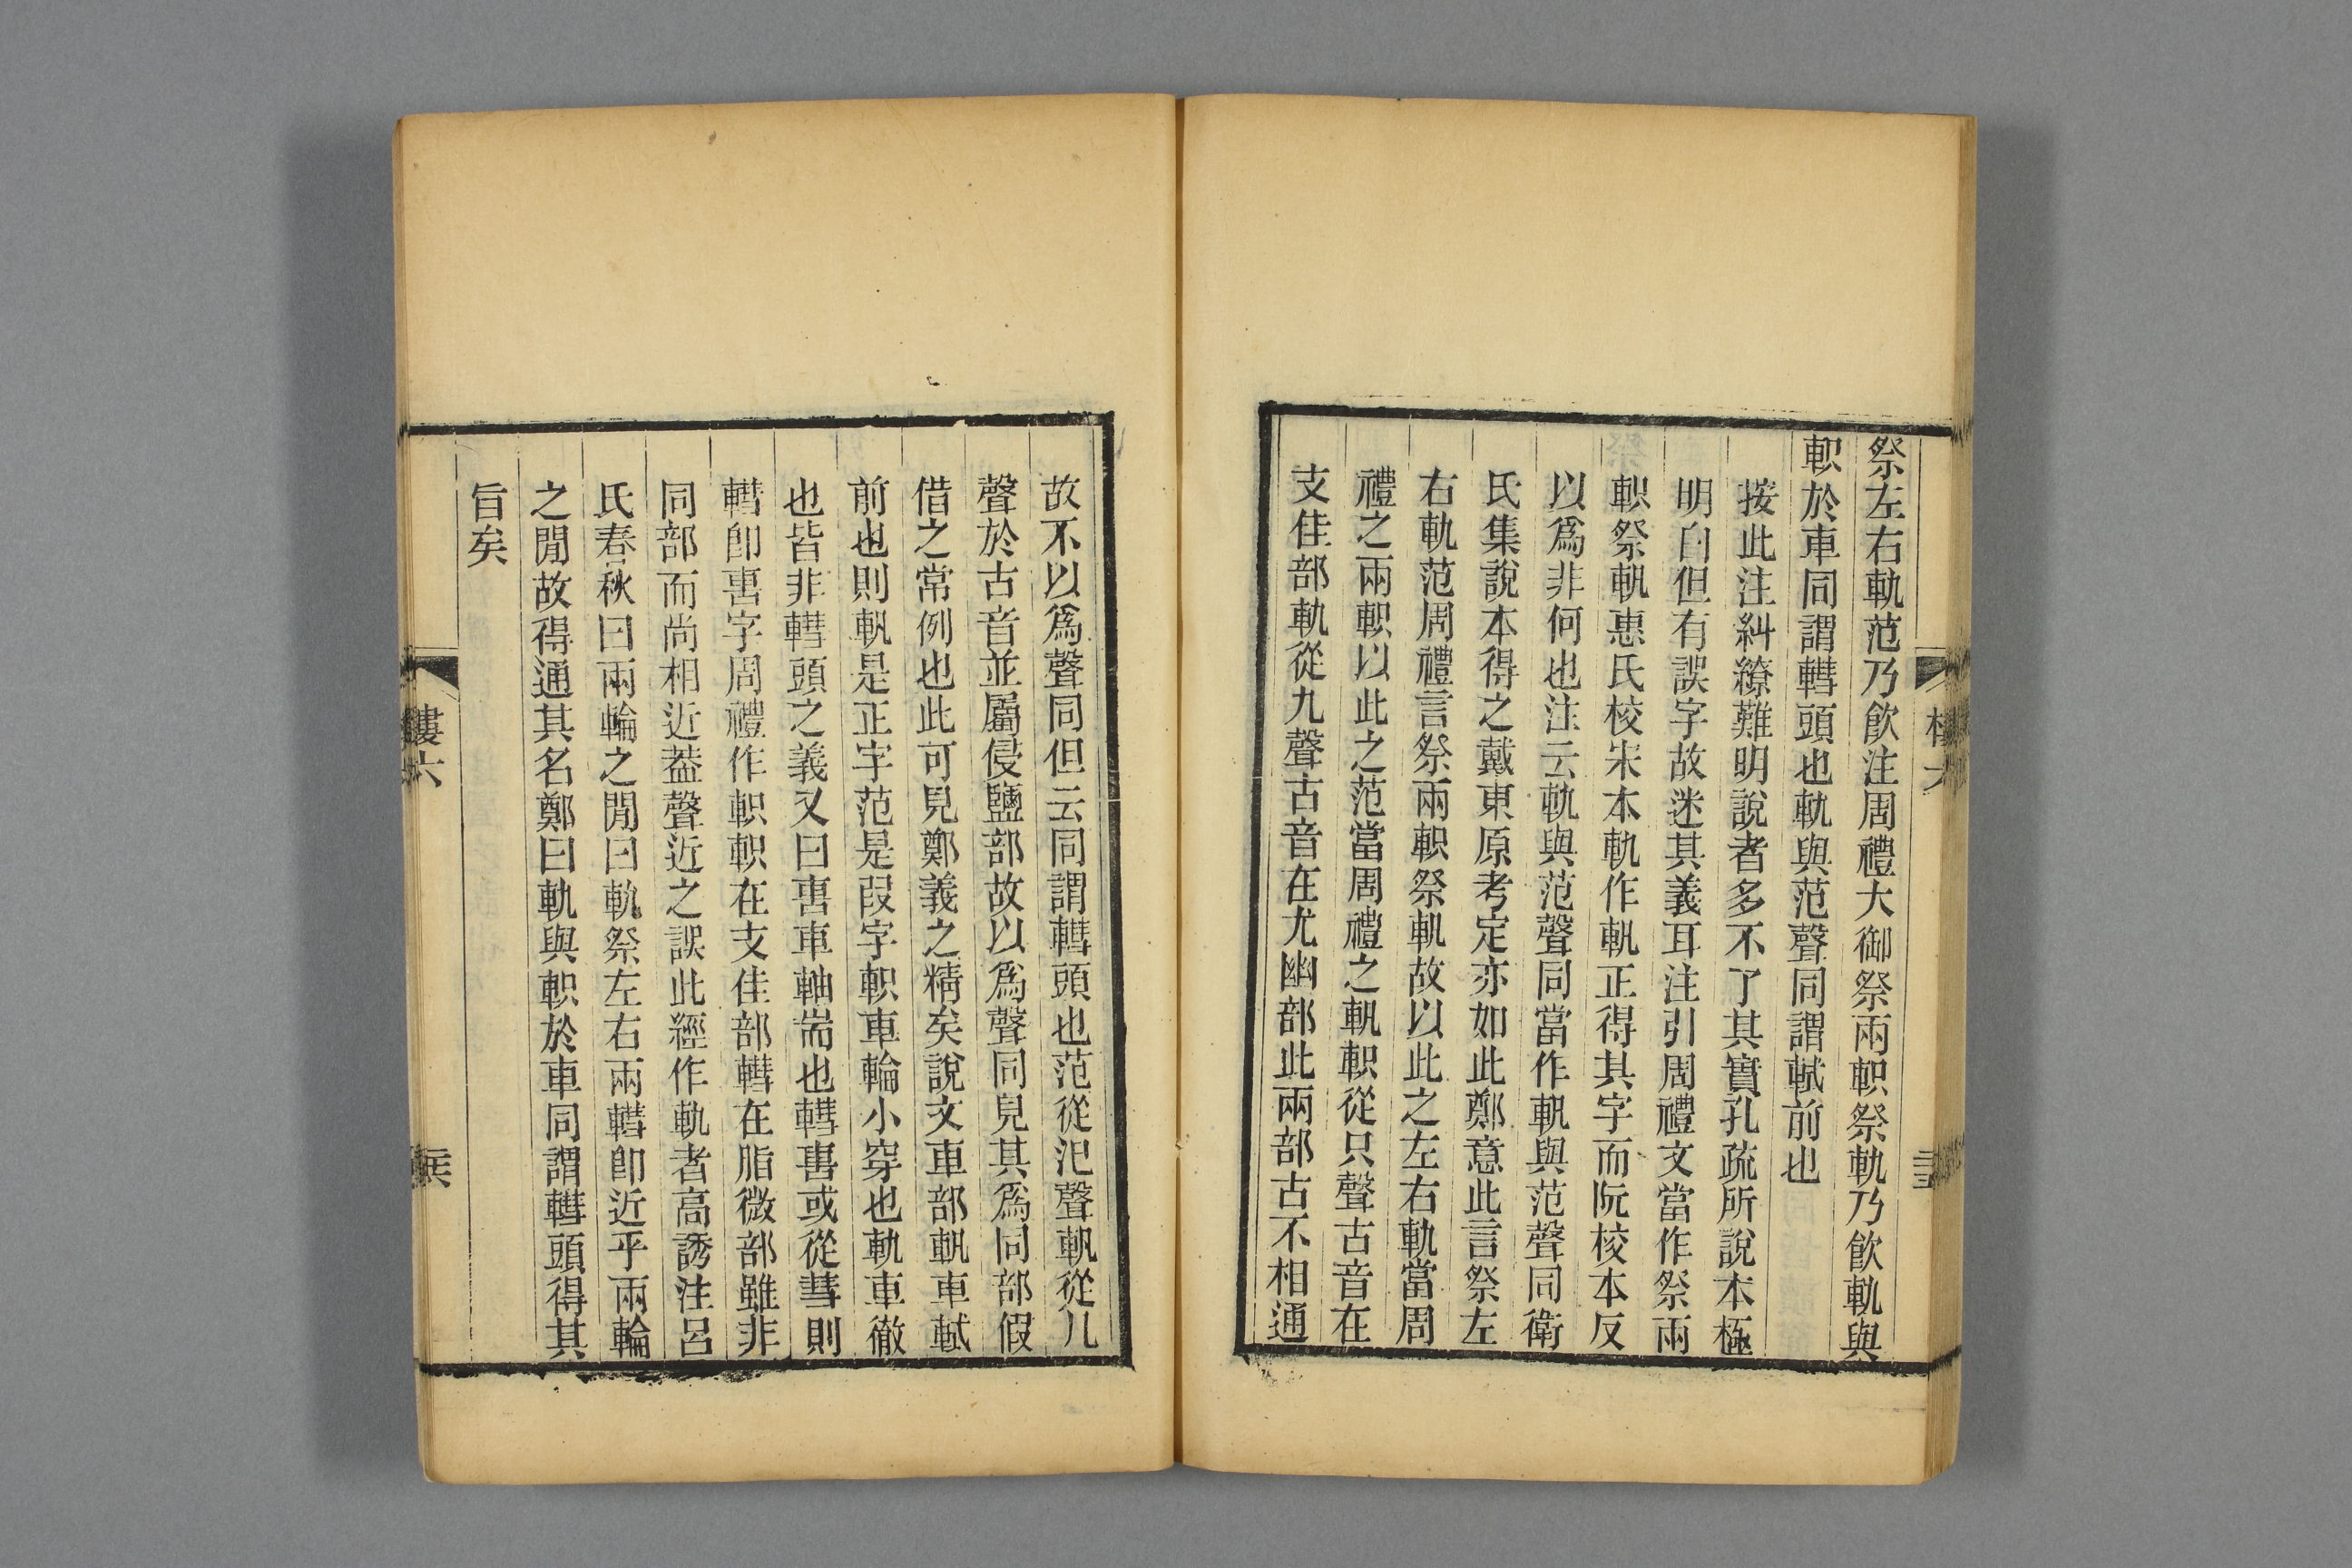 祭左右軌范乃飲注周禮大御祭兩軹祭軌乃飲軌與
軹於車同謂轊頭也軌與范聲同謂軾前也
按此注糾繚難明說者多不了其實孔疏所說本極
明白但有誤字故迷其義耳注引周禮文當作祭兩
軹祭軓惠氏校宋本軌作軓正得其字而阮校本反
以爲非何也注云軌與范聲同當作軓與范聲同衛
氏集說本得之戴東原考定亦如此鄭意此言祭左
右軌范周禮言祭兩軹祭軓故以此之左右軌當周
禮之兩軹以此之范當周禮之軓軹從只聲古音在
支佳部軌從九聲古音在尤幽部此兩部古不相通
故不以爲聲同但云同謂轊頭也范從氾聲軓從凡
聲於古音並屬侵鹽部故以爲聲同見其爲同部假
借之常例也此可見鄭義之精矣說文車部軓車軾
前也則軓是正字范是叚字軹車輪小穿也軌車徹
也皆非轊頭之義又曰軎車軸耑也轊軎或從彗則
轊卽軎字周禮作軹軹在支佳部轊在脂微部雖非
同部而尚相近葢聲近之誤此經作軌者高誘注呂
氏春秋曰兩輪之閒曰軌祭左右兩轊卽近乎兩輪
之閒故得通其名鄭曰軌與軹於車同謂轊頭得其
旨矣